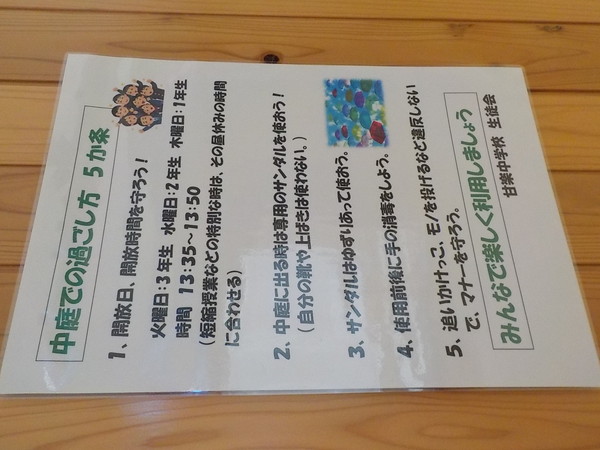 中庭での過ごし方 5か条
1、開放日、開放時間を守ろう！
火曜日：3年生 水曜日：2年生 木曜日：1年生
時間 13:35～13:50
（短縮授業などの特別な時は、その昼休みの時間
に合わせる）
2、中庭に出る時は専用のサンダルを使おう！
（自分の靴や上ばきは使わない。）
3、サンダルはゆずりあって使おう。
4、使用前後に手の消毒をしよう。
5、追いかけっこ、モノを投げるなど違反しない
で、マナーを守ろう。
みんなで楽しく利用しましょう
甘楽中学校 生徒会